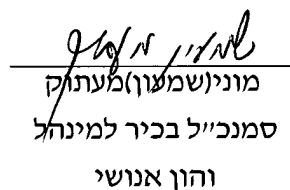 מוני(שמעון)מעתוק
סמנכ״ל בכיר למינהל
והון אנושי